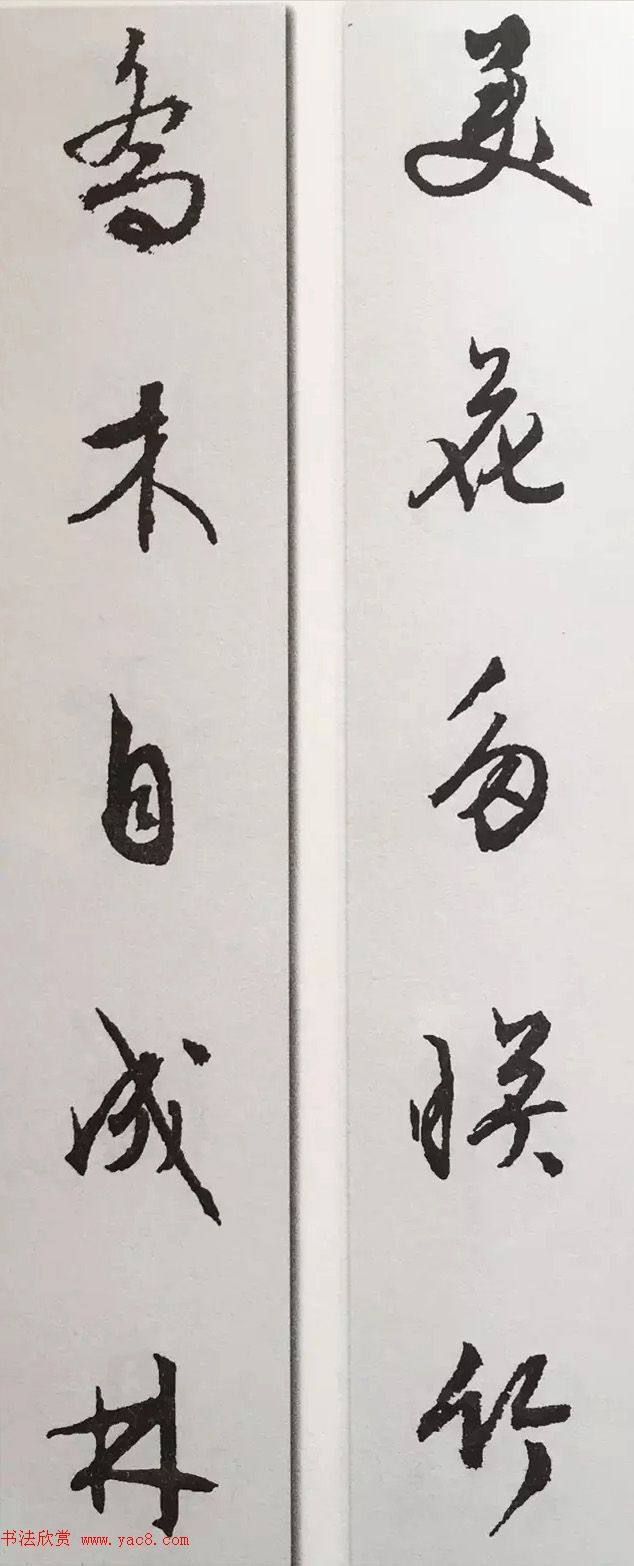 美花多暎竹
喬木自成林
书法欣赏 www.yac8.com